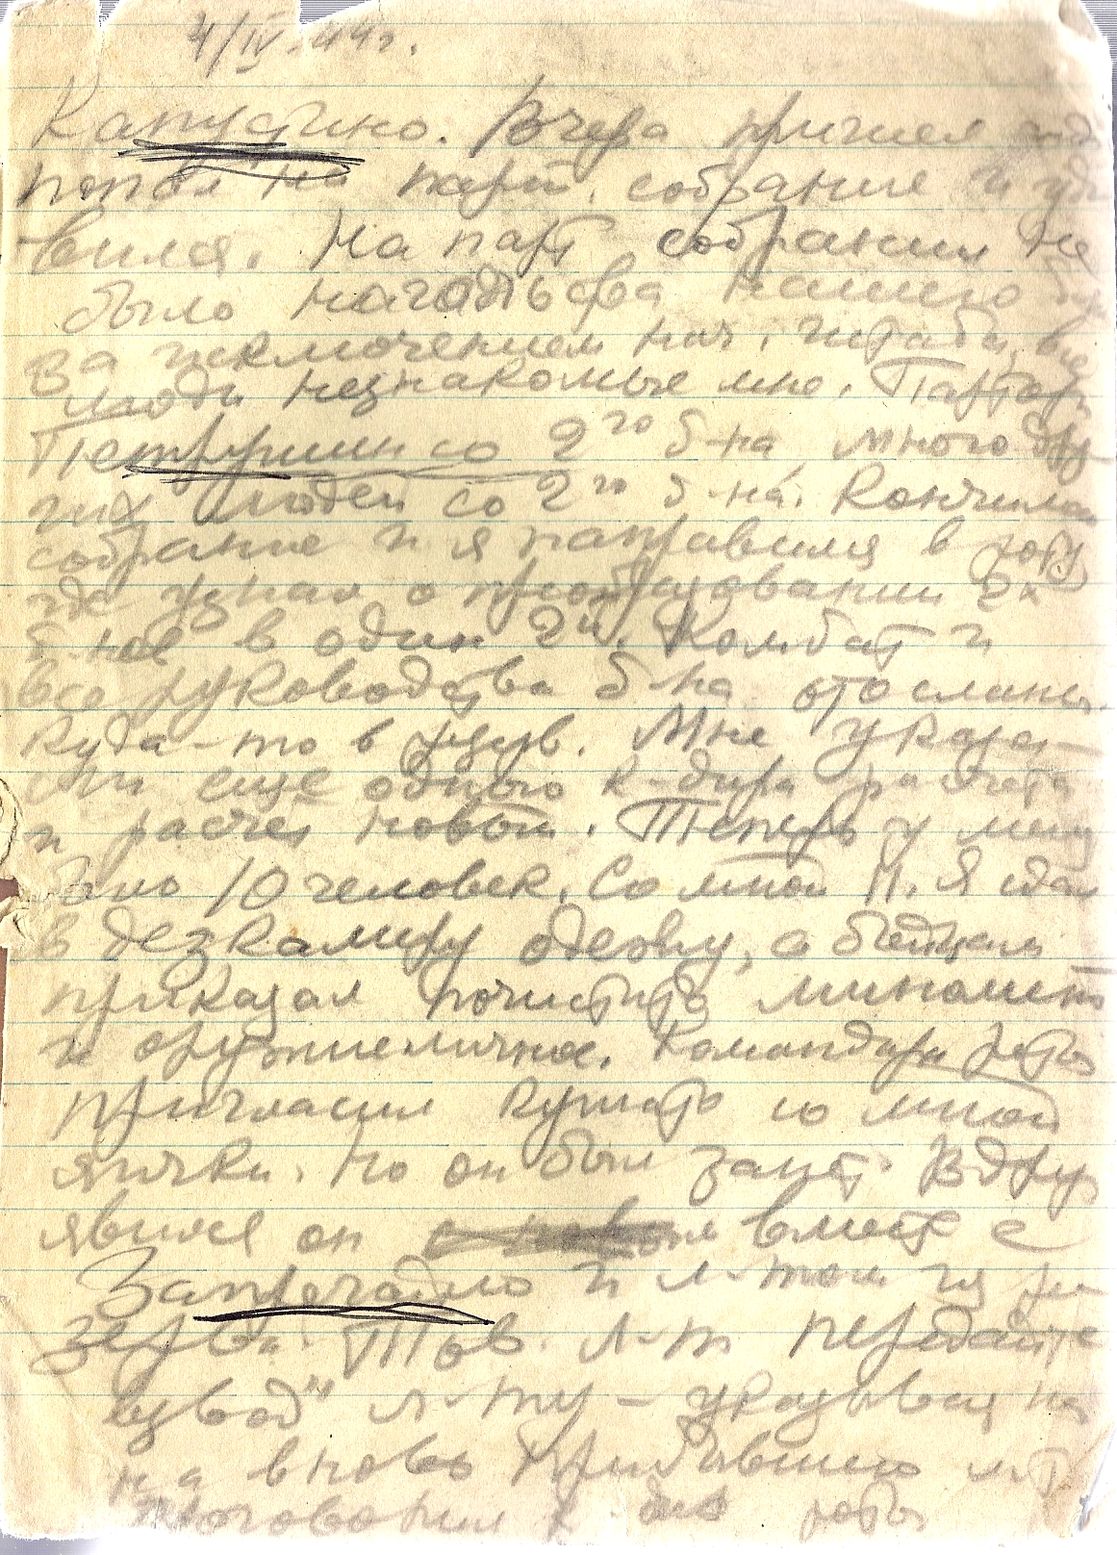 4/IV.44г.
Капустино. Вчера пришел
попал на парт. собрание и уди
вился. На парт собрании не
было начальства нашего
за исключением нач. штаба, все
люди незнакомые мне. Парторг
Петрушин со 2го б-на, много дру
гих людей со 2го б-на. Кончилось
собрание и я направился в роту
где узнал о преобразовании 2х
б-нов в один 2й. Комбат и
все руководство б-на отосланы
куда-то в резерв. Мне
ли еще одного к-дира расчета
и расчет новый. Теперь у меня
10 человек. Со мной 11. Я сдал
в дезкамеру одежу, а бойцам
приказал почистить минометы
и оружие личное. Командира роты
пригласил кушать со мной
яички. Но он был занят. Вдруг
явился он вместе с
и л-том из ре
зерва. Тов. л-т передайте
взвод" л-ту - указывая на
на вновь прибывшего л-т
к-дир роты